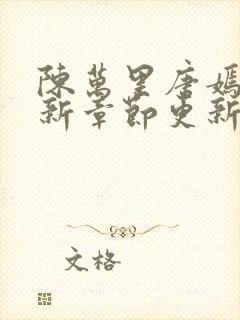 陳萬里唐嫣
新章節更新
文格